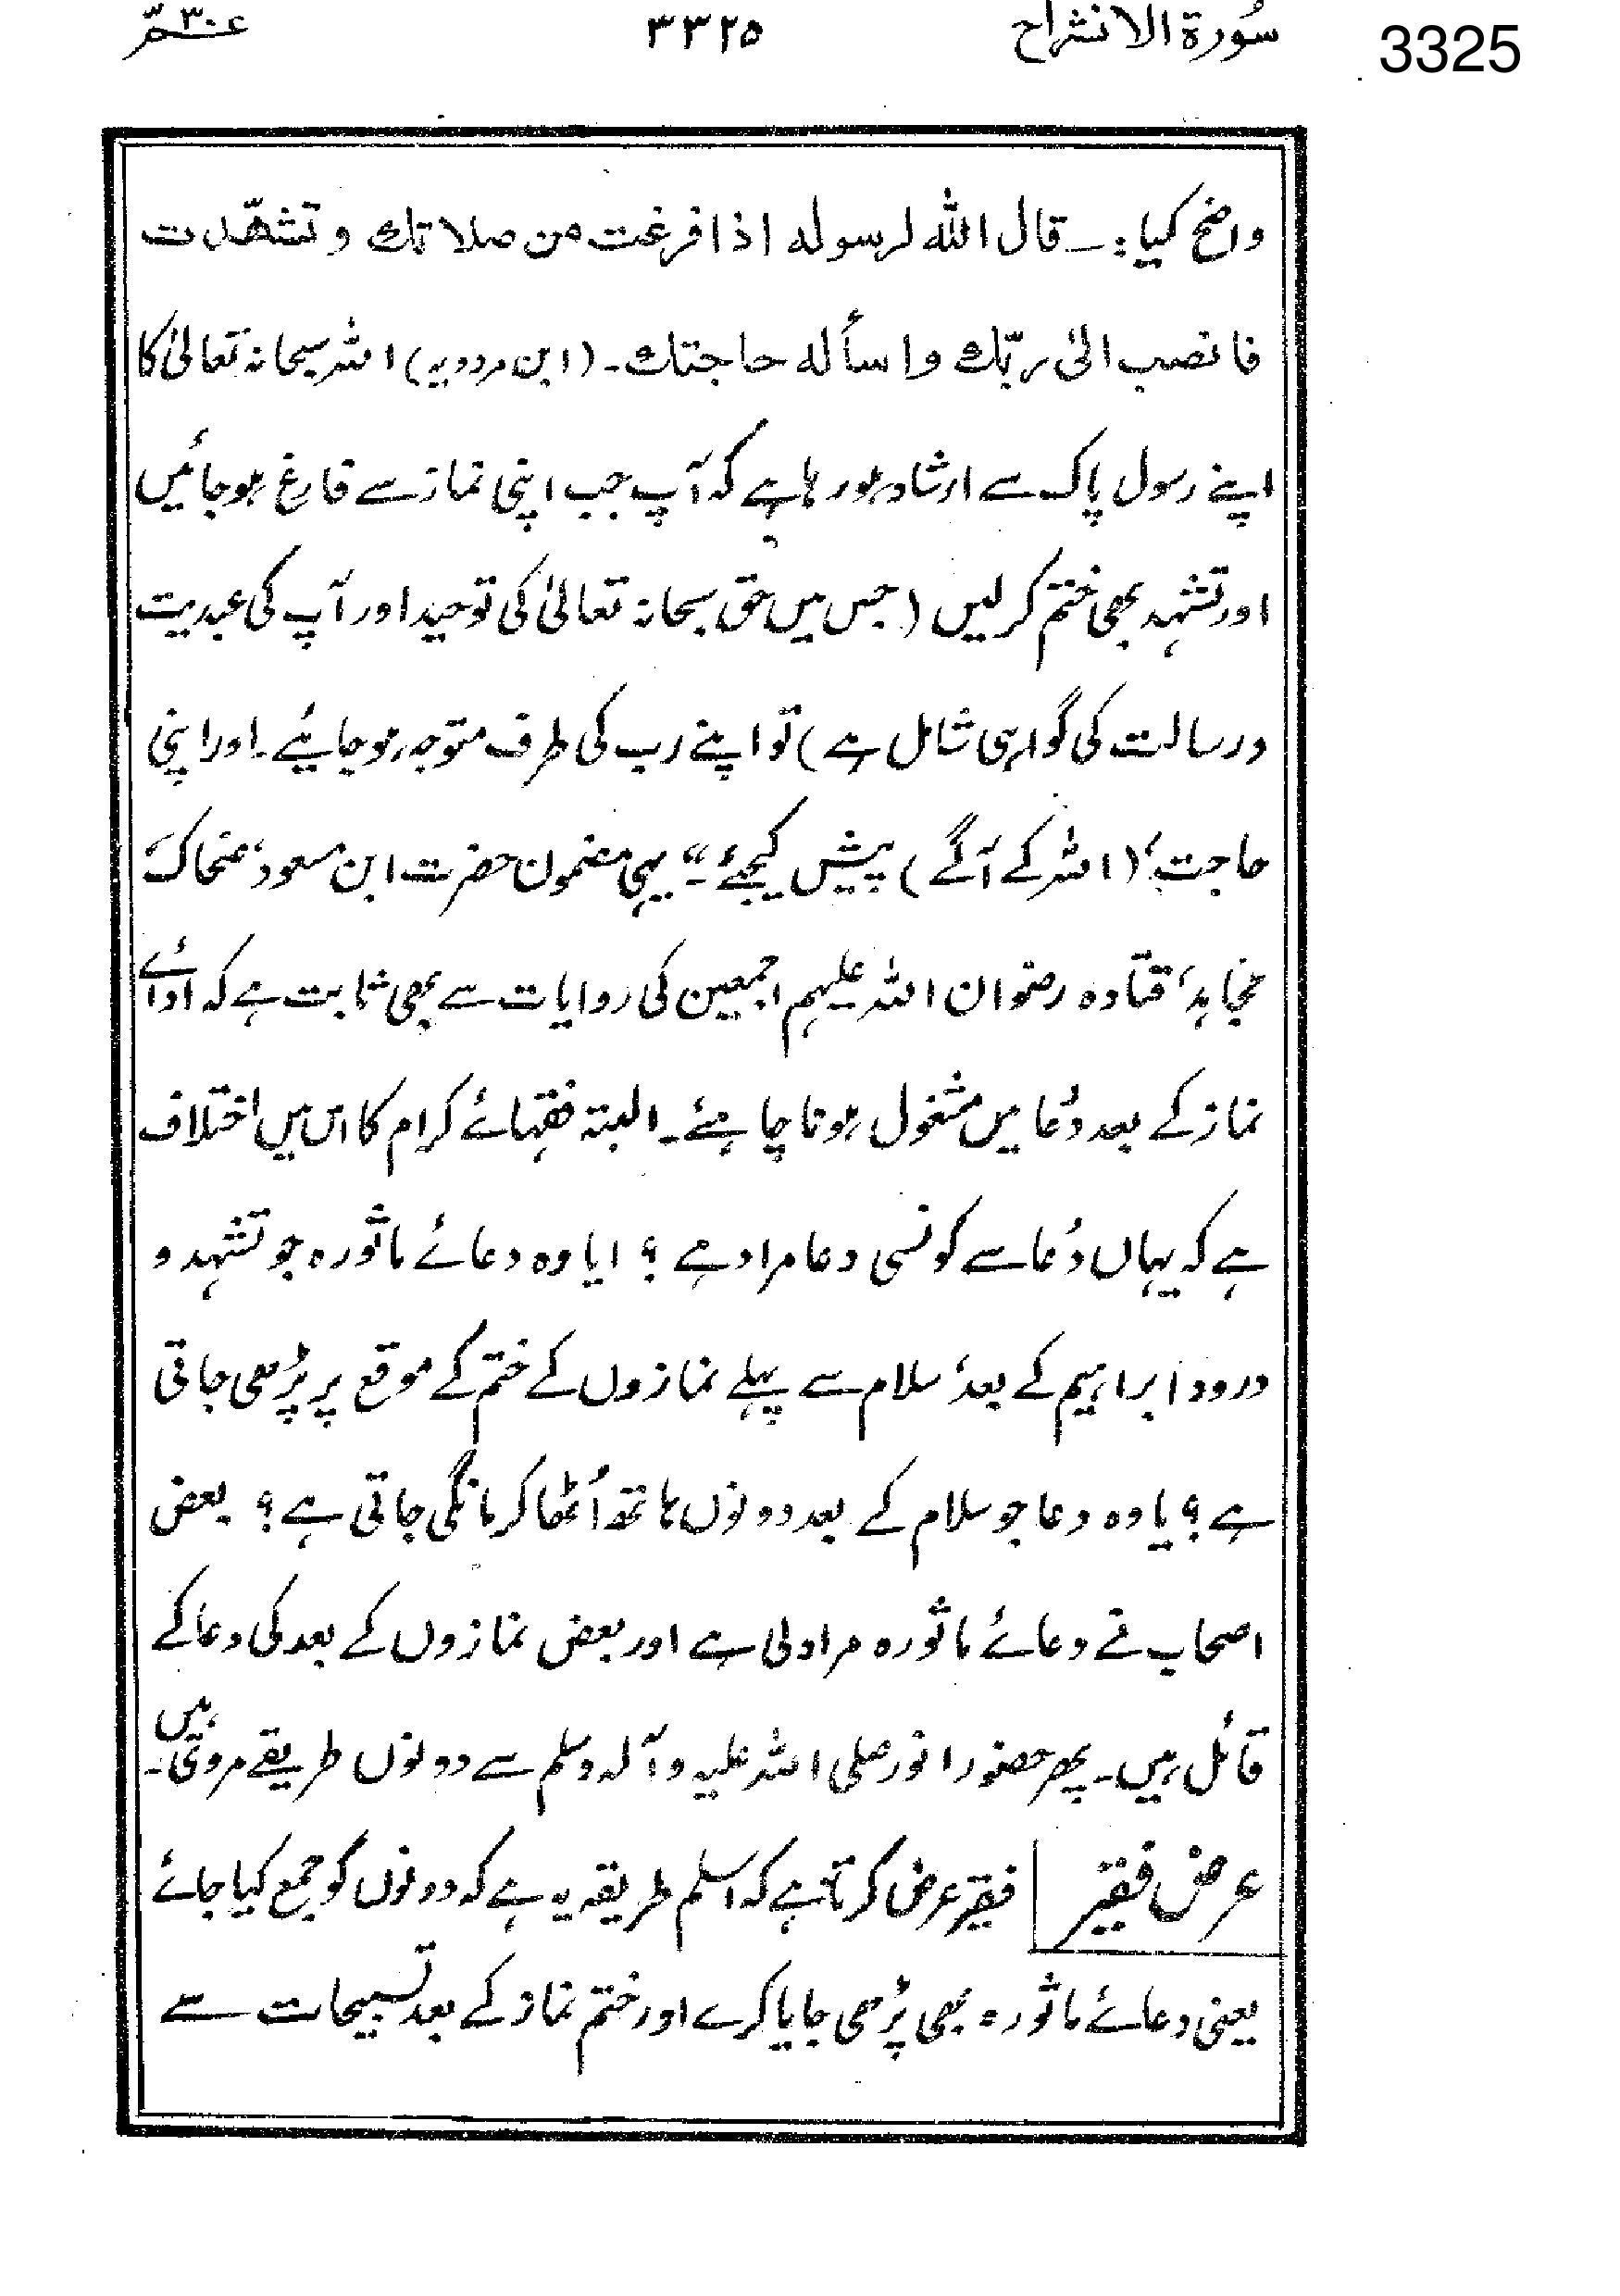 سُورة الانشراح ۳۳۲۵ عمّ ۳۰ 3325
واضح کیا:۔ قال اللہ لرسولہ اذا فرغت من صلاتك و تشھّدت
فانصب الیٰ ربّك واسألہ حاجتك۔ (ابن مردویہ) اللہ سبحانہ تعالیٰ کا
اپنے رسول پاک سے ارشاد ہو رہا ہے کہ آپ جب اپنی نماز سے فارغ ہو جائیں
اور تشہد بھی ختم کر لیں (جس میں حق سبحانہ تعالیٰ کی توحید اور آپ کی عبدیت
و رسالت کی گواہی شامل ہے) تو اپنے رب کی طرف متوجہ ہو جائیے۔ اور اپنی
حاجت، (اللہ کے آگے) پیش کیجئے۔“ یہی مضمون حضرت ابن مسعود، ضحاک،
مجاہد، قتادہ رضوان اللہ علیہم اجمعین کی روایات سے بھی ثابت ہے کہ ادائے
نماز کے بعد دُعا میں مشغول ہونا چاہئے۔ البتہ فقہائے کرام کا اس میں اختلاف
ہے کہ یہاں دُعا سے کونسی دعا مراد ہے ؟ ایا وہ دعائے ماثورہ جو تشہد و
درود ابراہیم کے بعد، سلام سے پہلے نمازوں کے ختم کے موقع پر پڑھی جاتی
ہے ؟ یا وہ دعا جو سلام کے بعد دونوں ہاتھ اُٹھا کر مانگی جاتی ہے ؟ بعض
اصحاب نے دعائے ماثورہ مراد لی ہے اور بعض نمازوں کے بعد کی دعا کے
قائل ہیں۔ پھر حضور انور صلی اللہ علیہ وآلہ وسلم سے دونوں طریقے مروی ہیں۔
عرض فقیر فقیر عرض کرتا ہے کہ اسلم طریقہ یہ ہے کہ دونوں کو جمع کیا جائے
یعنی دعائے ماثورہ بھی پڑھی جایا کرے اور ختم نماز کے بعد تسبیحات سے